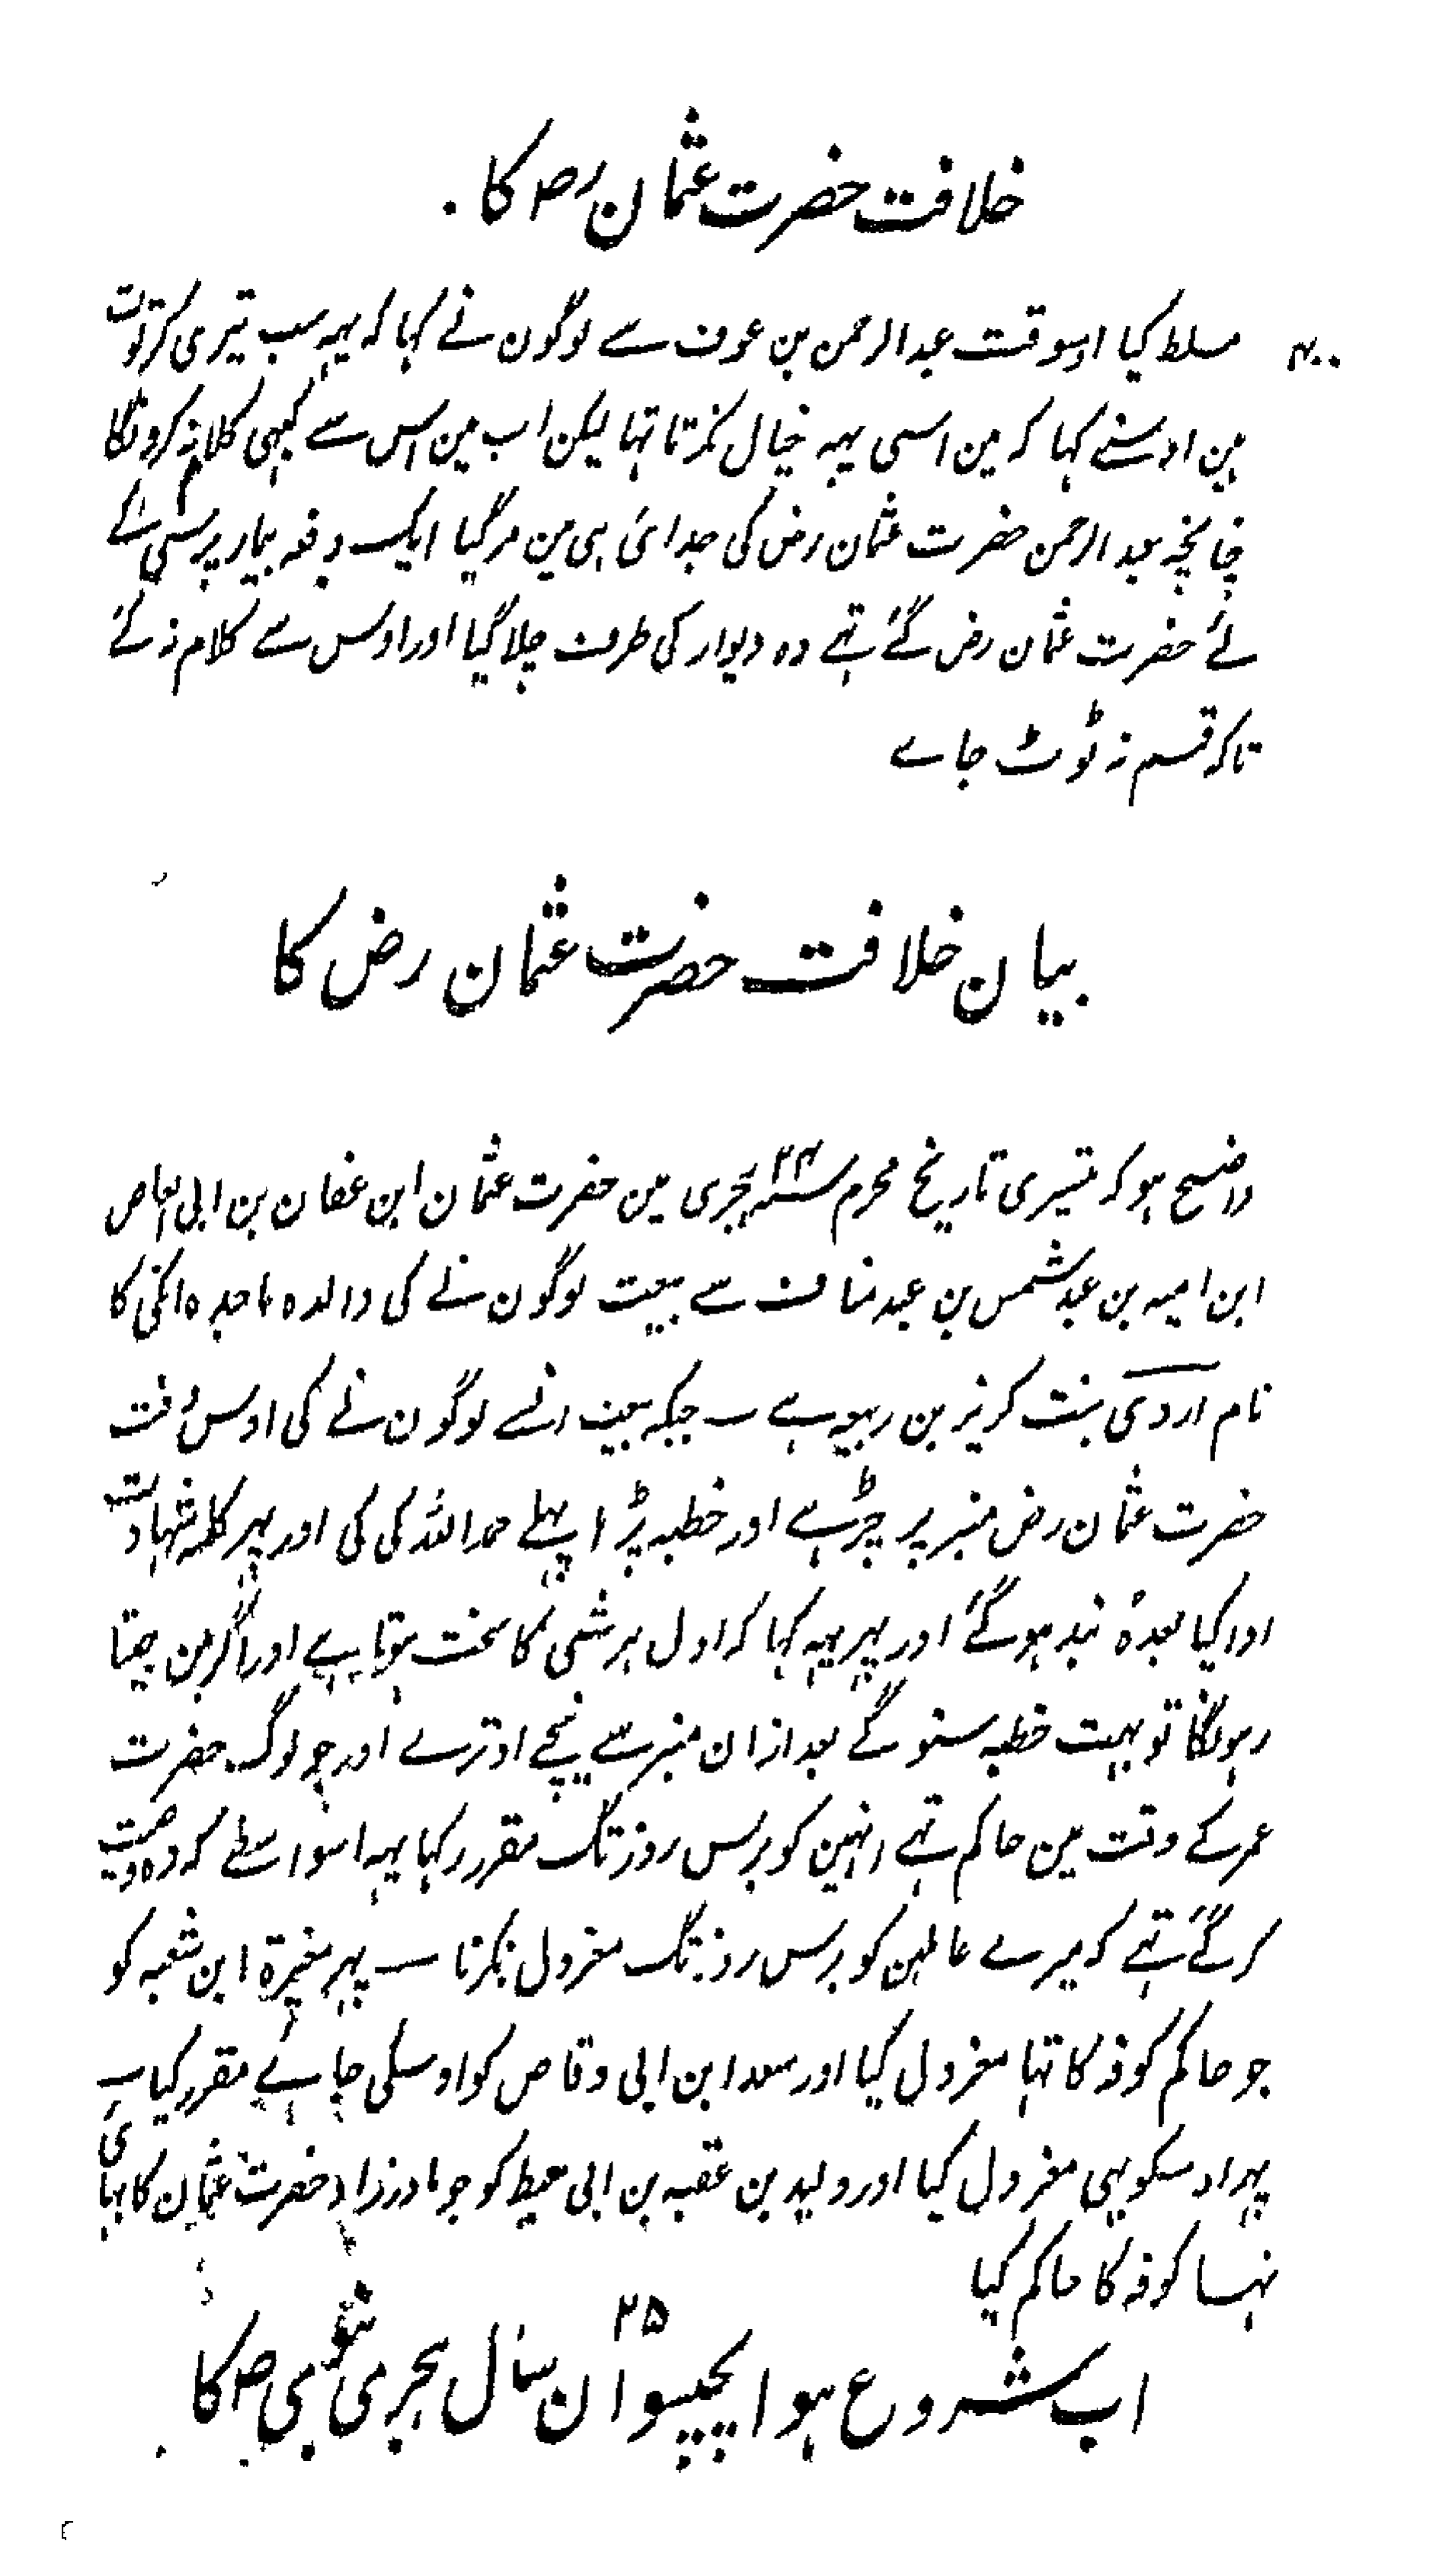 خلافت حضرت عثمان رض کا
۴۰۰
مسلط کیا اوسوقت عبدالرحمن بن عوف سے لوگون نے کہا کہ یہہ سب تیری کرتوت
ہین اوسنے کہا کہ مین اسی یہہ خیال نکرتا تہا لیکن اب مین اس سے کبہی کلام نہ کرونگا
چنانچہ عبد الرحمن حضرت عثمان رض کی جدائی ہی مین مر گیا ایک دفعہ بیمار پرسی کے
لئے حضرت عثمان رض گئے تہے وہ دیوار کی طرف چلا گیا اور اوس سے کلام نہ کے
تاکہ قسم نہ ٹوٹ جاے
بیان خلافت حضرت عثمان رض کا
واضح ہو کہ تیسری تاریخ محرم سنہ ۲۴ ہجری مین حضرت عثمان ابن عفان بن ابی العاص
ابن امیہ بن عبد شمس بن عبد مناف سے بیعت لوگون نے کی والدہ ماجدہ انکی کا
نام اروی بنت کریز بن ربیعہ ہے ۔ جبکہ بیعت انسے لوگون نے کی اوس وقت
حضرت عثمان رض منبر پر چڑہے اور خطبہ پڑا پہلے حمد اللہ کی کی اور پہر کلمہ شہادت
ادا کیا بعدہ بند ہو گئے اور پہر یہہ کہا کہ اول ہر شی کا سخت ہوتا ہے اور اگر مین جیتا
رہونگا تو بہت خطبہ سنو گے بعد ازان منبر سے نیچے اوترے اور جو لوگ حضرت
عمر کے وقت مین حاکم تہے انہین کو برس روز تک مقرر رکہا یہہ اسواسطے کہ وہ وصیت
کر گئے تہے کہ میرے عاملین کو برس روز تک معزول نکرنا ۔ پہر مغیرۃ ابن شعبہ کو
جو حاکم کوفہ کا تہا معزول کیا اور سعد ابن ابی وقاص کو اوسکی جاے مقرر کیا ۔
پہر اوسکو بہی معزول کیا اور ولید بن عقبہ بن ابی معیط کو جو مادرزاد حضرت عثمان کا بہائی
تہا کوفہ کا حاکم کیا
اب شروع ہوا پچیسوان ۲۵ سال ہجری نبوی ص کا